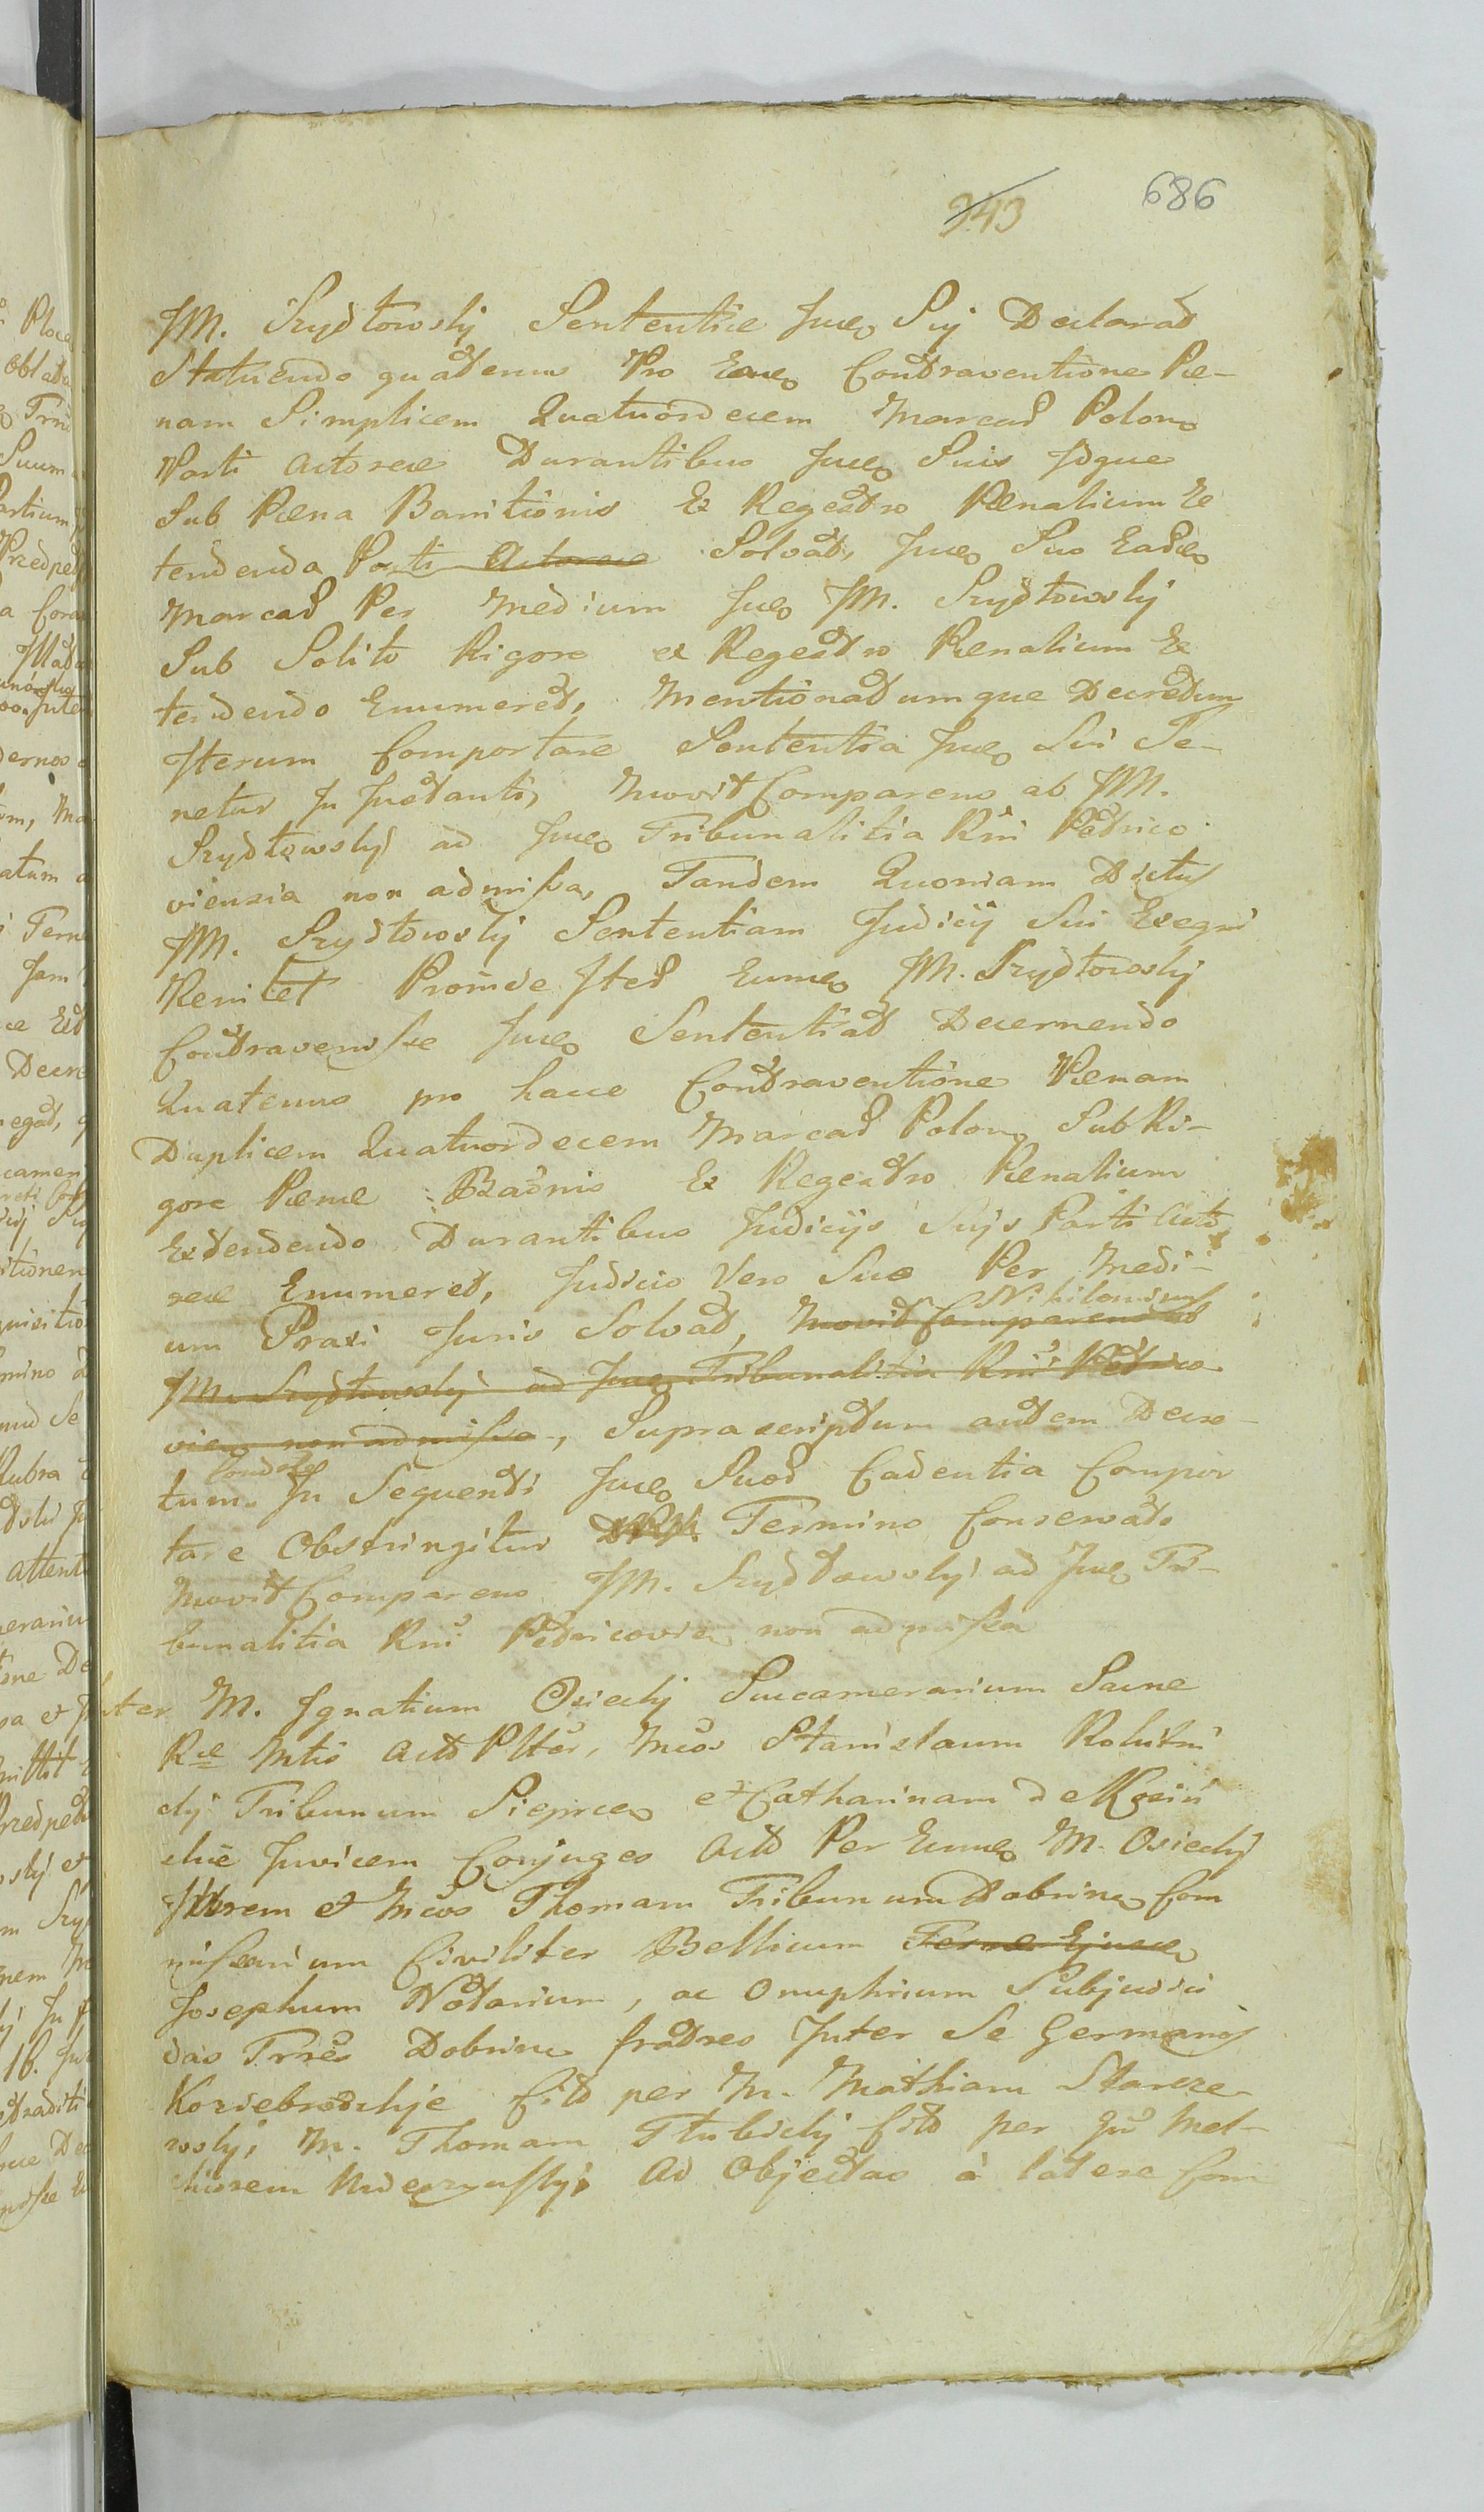 943 686
JM. Szydłowsky Sententiæ Juceo Suj Declarat
Statuendo quatenus Pro Eaceo Contraventione Pæ-
nam Simplicem Quatuordecem Marcas Polon
Parti Actoreæ Durantibus Juceo Suis Idque
Sub Pæna Banitionis Ex Regestro Pænalium Ex
tendenda Parti Actoreæ Solvat, Juceo Suo Eadeo
Marcas Per Medium Juceo JM. Szydłowsky
Sub Solito Rigore ex Regestro Pænalium Ex
tendendo Enumeret, Mentionatumque Decretum
Iterum Comportare Sententia Juceo Sui Te-
netur In Instanti, Movit Comparens ab JM.
Szydłowsky ad Juceo Tribunalitia Rni Petrico
viensia non admissa, Tandem Quoniam Dictus
JM. Szydłowsky Sententiam Judicij Sui Exequi
Renitet Proinde Ited Eumeo JM. Szydłowsky
Contravenisse Juceo Sententiat Decernendo
Quatenus pro hacce Contraventione Pænam
Duplicem Quatuordecem Marcas Polon Sub Ri-
gore Pænæ Banis Ex Regestro Pænalium
Extendendo Durantibus Judicijs Sujs Parti Acto
reæ Enumeret, Judicio Vero Suo Per Medi-
um Praxi Juris Solvat, Movit Comparens ab Nihilominus
JM. Szydłowsky ad Juceo Tribunalitia Rni Petrico
viens non admissa, Suprascriptum autem Decre-
tum In Sequenti Juceo Suod Cadentia Compor
tare Obstringitur Termino Conservato
Movit Comparens JM. Szydłowsky ad Juceo Tri-
bunalitia Rni Petricovien non admissa
Inter M. Ignatium Osiecky Succamerarium Sacræ
Ræ Mtis Acto Plter, Mcos Stanislaum
cky Tribunum Sieprceo et Catharinam de
skie Invicem Conjuges Acto Per Eumeo M. Osiecky
et Mcos Thomam Tribunum Dobrine Com
missarium Civiliter Bellicum Terræ Ejusce
Josephum Notarium, ac Onuphrium Subjudi
das Trres Dobrine fratres Inter Se Germanos
Korzebrodzkje Cito per M. Mathiam Starze
wsky, M. Thomam Cito per Gm Mel-
chiorem Ad Objectas à latere Com